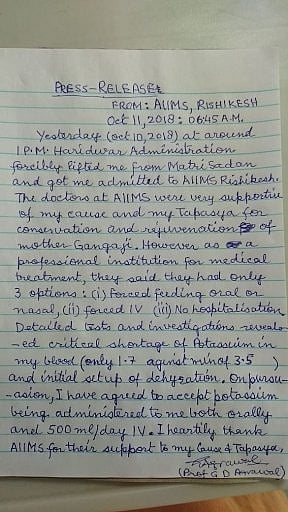 PRESS-RELEASE
FROM: AIIMS, RISHIKESH
Oct 11, 2018: 0645 A.M.
Yesterday (Oct 10, 2018) at around
1 P.M. Haridwar Administration
forcibly lifted me from Matri Sadan
and got me admitted to AIIMS Rishikesh.
The doctors at AIIMS were very supportive
of my cause and my Tapasya for
conservation and rejuvenation of
mother Gangaji. However as a
professional institution for medical
treatment, they said they had only
3 options: (i) Forced feeding oral or
nasal, (ii) forced IV (iii) No hospitalisation
Detailed Tests and investigations reveal-
-ed critical shortage of Potassium in
my blood (only 1.7 against min of 3.5 )
and initial setup of dehydration. On pursu-
-asion, I have agreed to accept potassium
being administered to me both orally
and 500 ml/day IV. I heartily thank
AIIMS for their support to my Cause & Tapasya.
(Prof G D Agrawal)